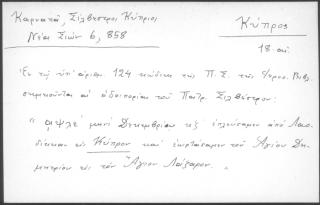 Καρνατᾶ, Σίλβεστροι Κύπριοι
Νέα Σιὼν 6, 858
Κύπρος
18. αἰ.
Ἐν τῷ ὑπ' ἀριθμ. 124 κώδικι τῆς Π. Σ. τῆς Βιβλ.
σημειοῦνται αἱ ὁδοιπορίαι τοῦ Πατρ. Σιλβέστρου:
"αψλε' μηνὶ Δεκεμβρίου κξ' ἐπλεύσαμεν ἀπὸ Λαο-
δίκειαν εἰς Κύπρον καὶ ἑωρτάσαμεν τοῦ Ἁγίου Δη-
μητρίου εἰς τὸν Ἅγιον Λάζαρον. "